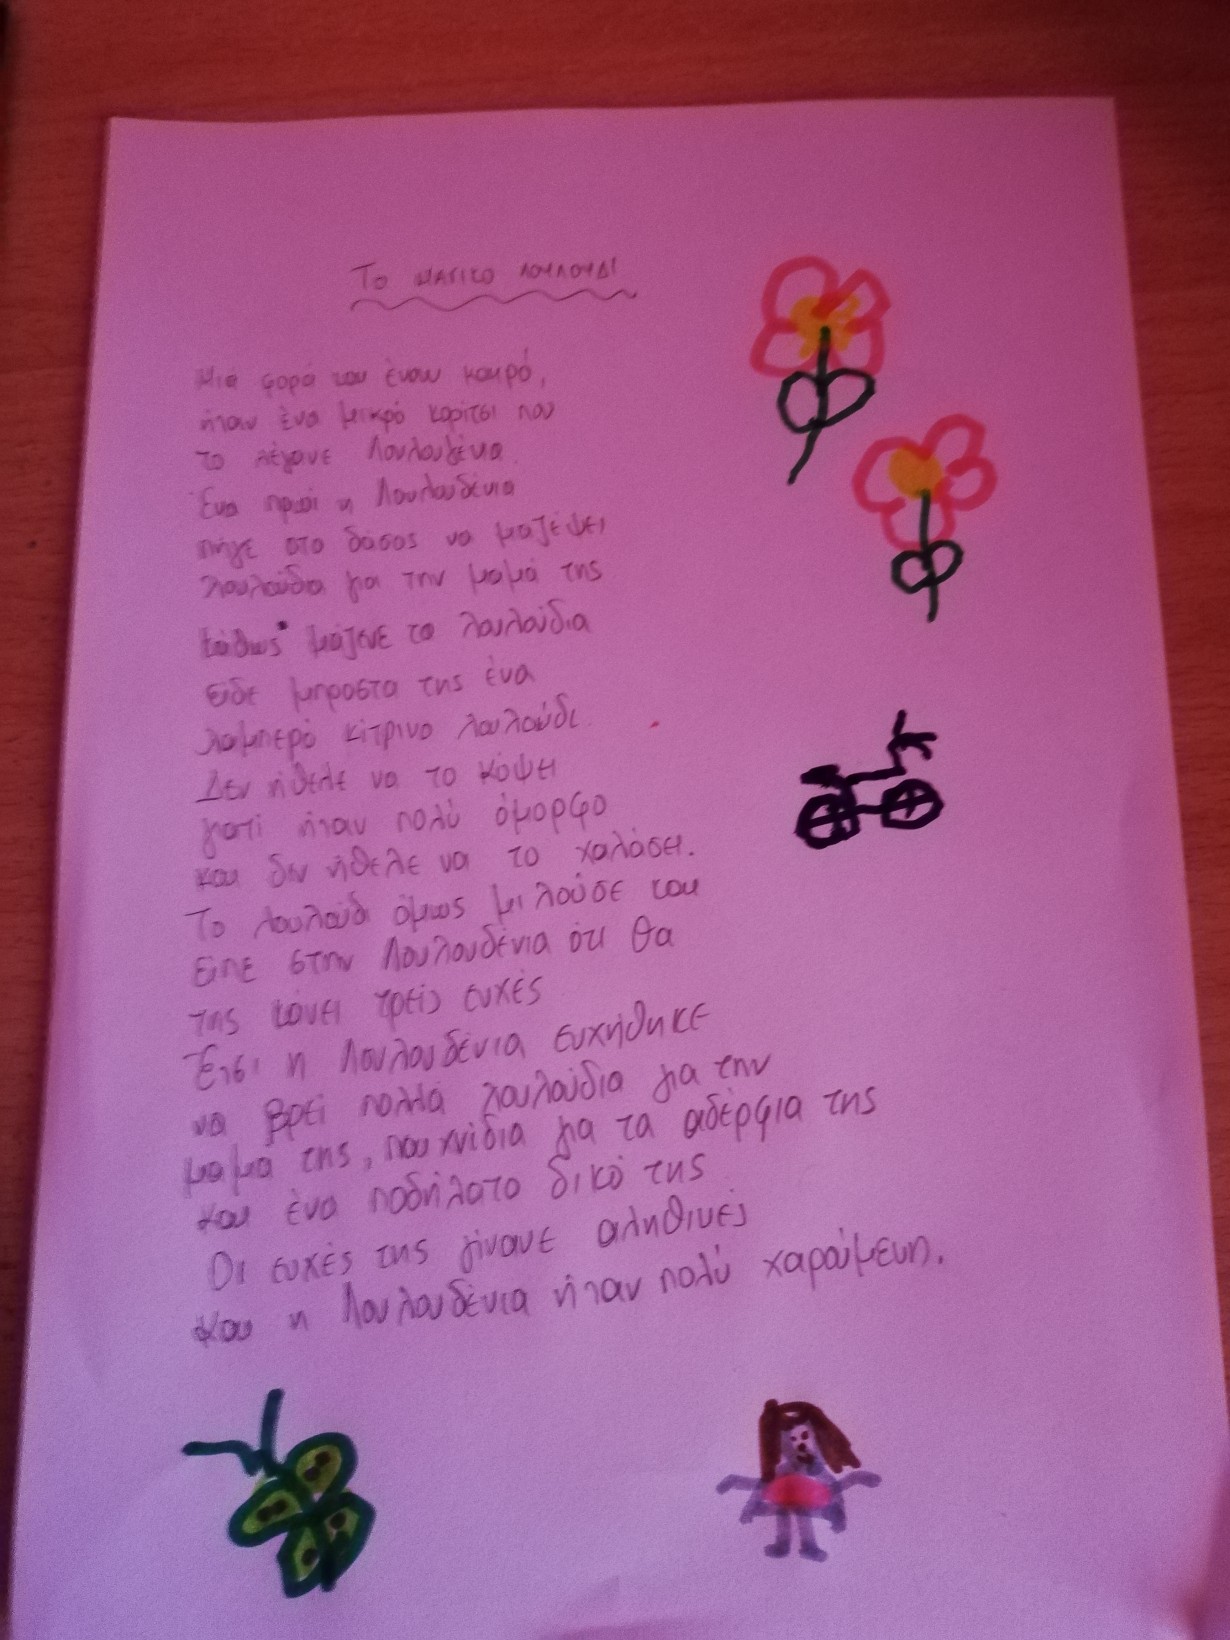 Το ΜΑΓΙΚΟ ΛΟΥΛΟΥΔΙ
Μια φορά και έναν καιρό,
ήταν ένα μικρό κορίτσι που
το λέγανε Λουλουδένια
Ένα πρωί η Λουλουδένια
πήγε στο δάσος να μαζέψει
λουλούδια για την μαμά της
καθώς μάζευε τα λουλούδια
είδε μπροστα της ένα
λαμπερό κίτρινο λουλούδι
Δεν ήθελε να το κόψει
γιατί ήταν πολύ όμορφο
και δεν ήθελε να το χαλάσει.
Το λουλούδι όμως μιλούσε και
είπε στην Λουλουδένια ότι θα
της κάνει τρείς ευχές
Έτσι η Λουλουδένια ευχήθηκε
να βρεί πολλά λουλούδια για την
μαμά της, παιχνίδια για τα αδέρφια της
και ένα ποδήλατο δικό της
Οι ευχές της γίνανε αληθινές
και η Λουλουδένια ήταν πολύ χαρούμενη.